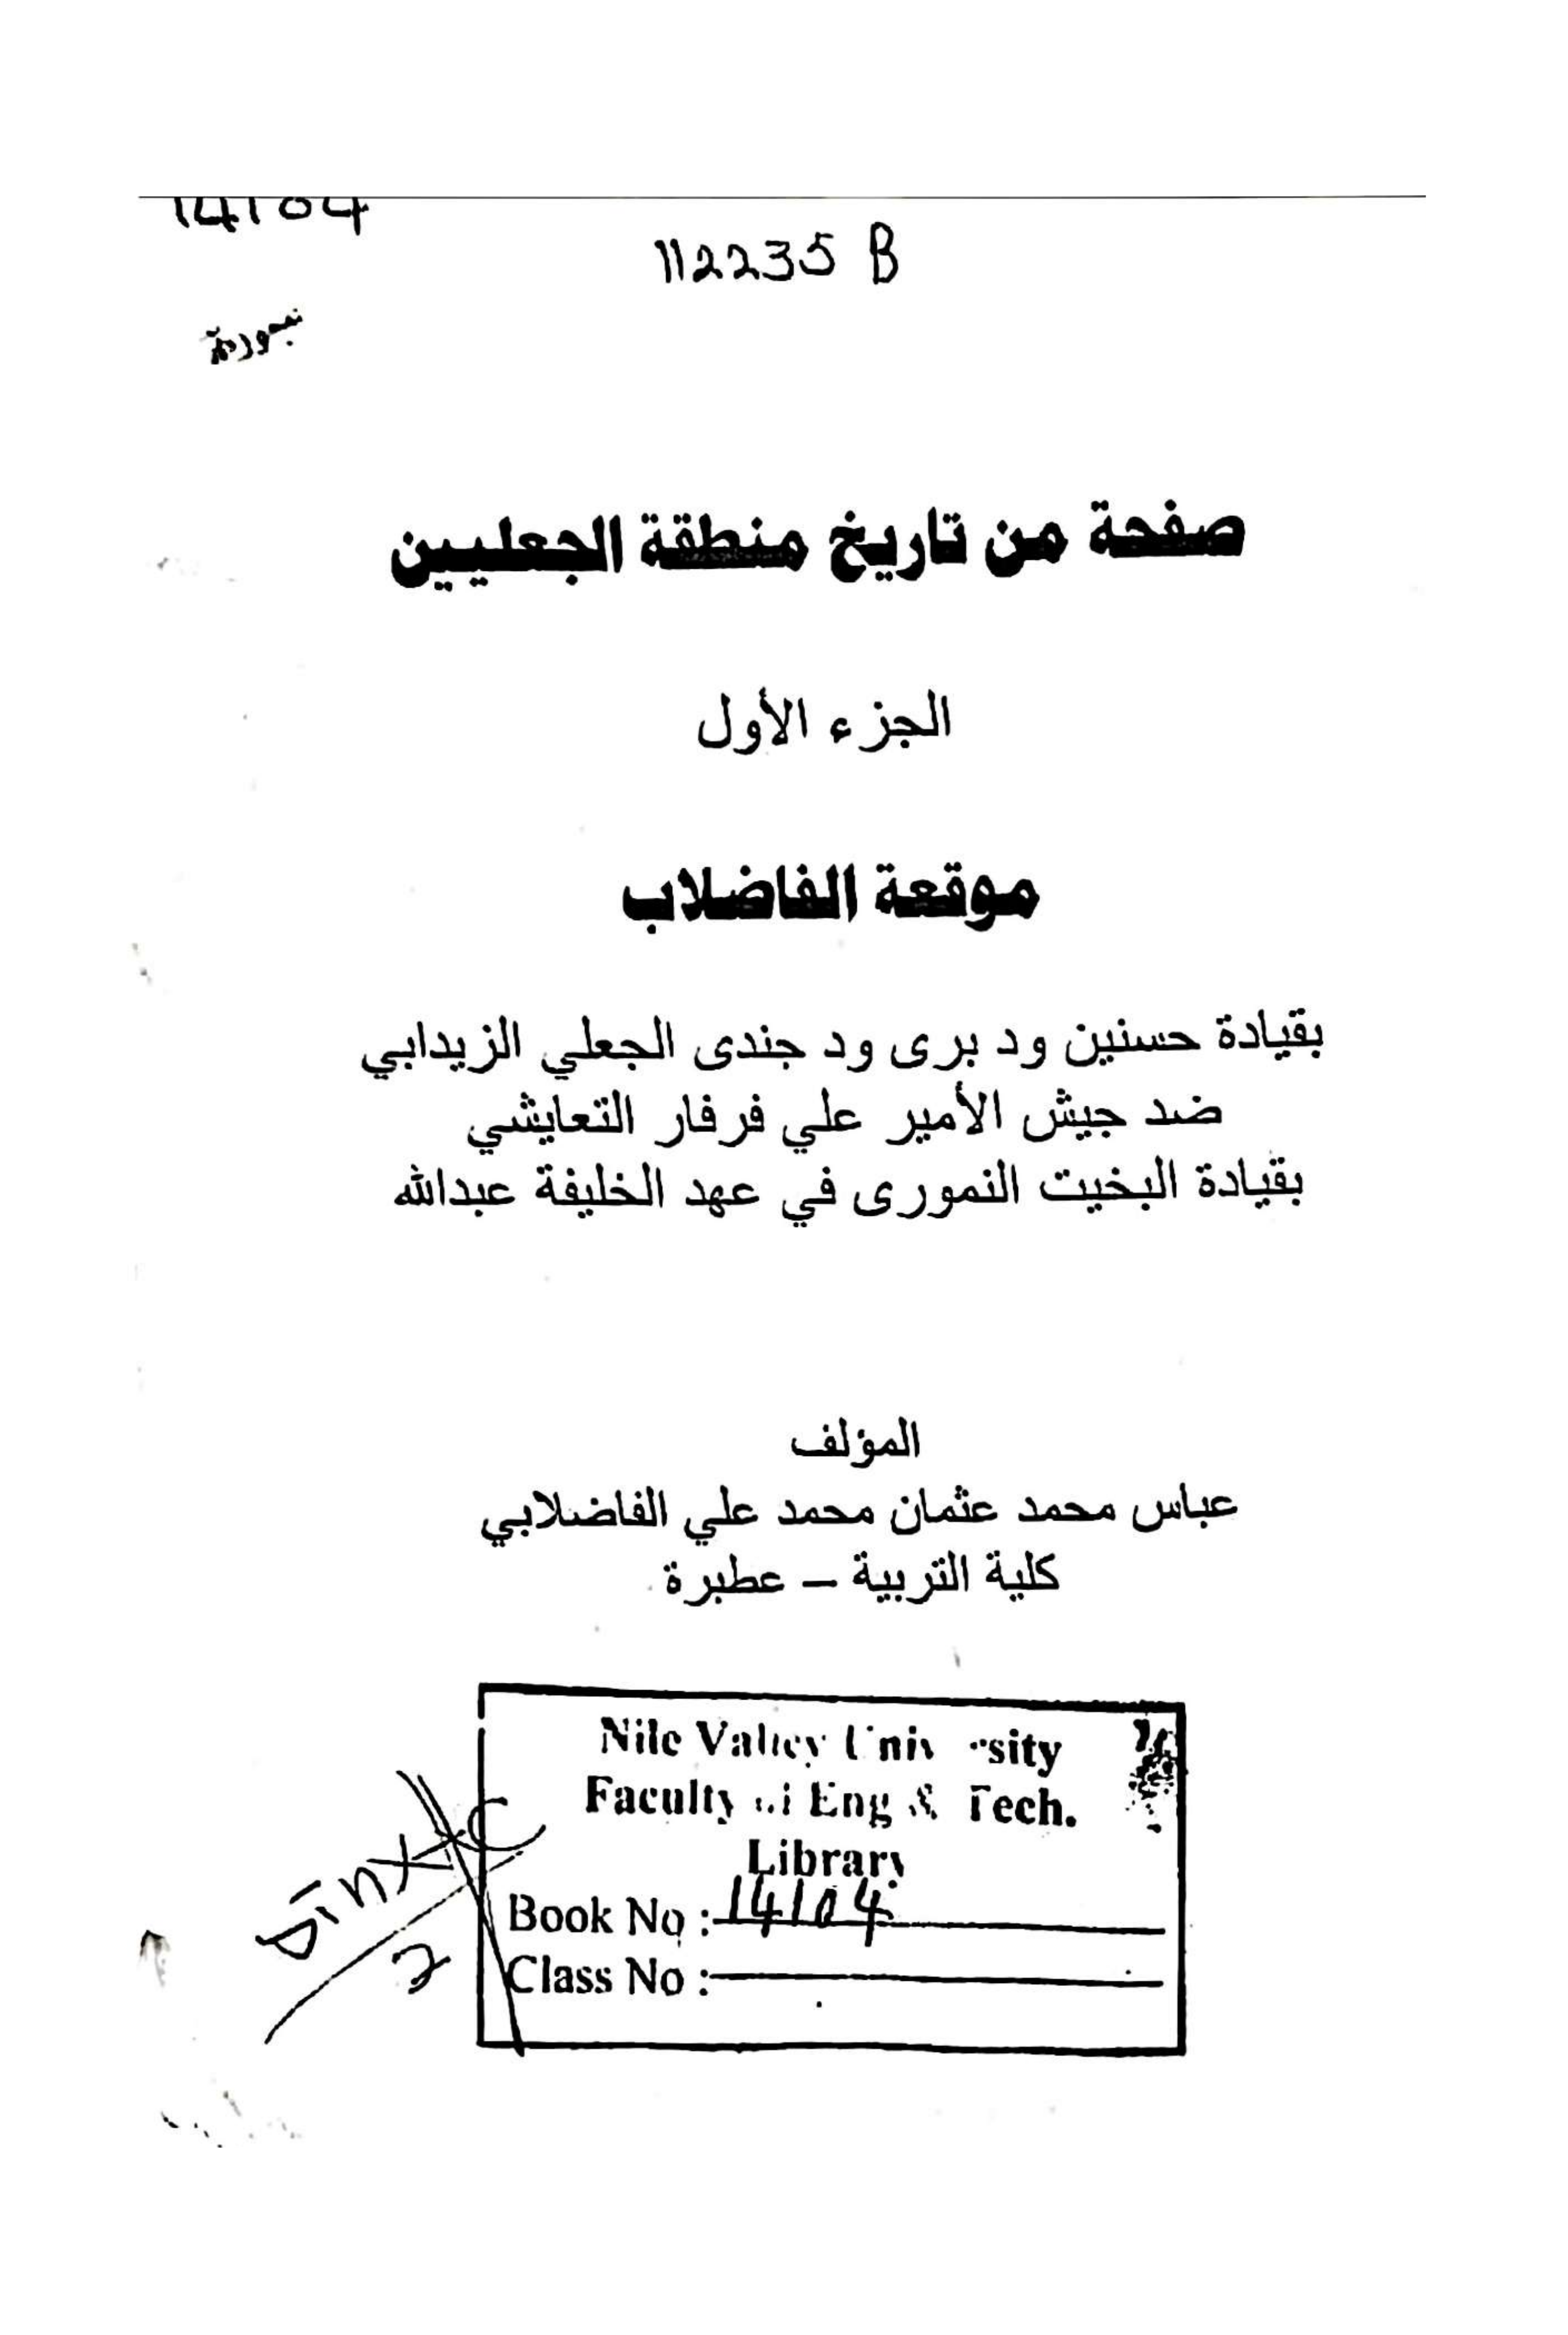 14104
112235 B
صفحة من تاريخ منطقة الجعليين
الجزء الأول
موقعة الفاضلاب
بقيادة حسنين ود برى ود جندى الجعلي الزيدابي
ضد جيش الأمير علي فرفار التعايشي
بقيادة البخيت النمورى في عهد الخليفة عبدالله
المؤلف
عباس محمد عثمان محمد علي الفاضلابي
كلية التربية – عطبرة
Nile Valley University
Faculty of Eng & Tech.
Library
Book No : 14104
Class No :